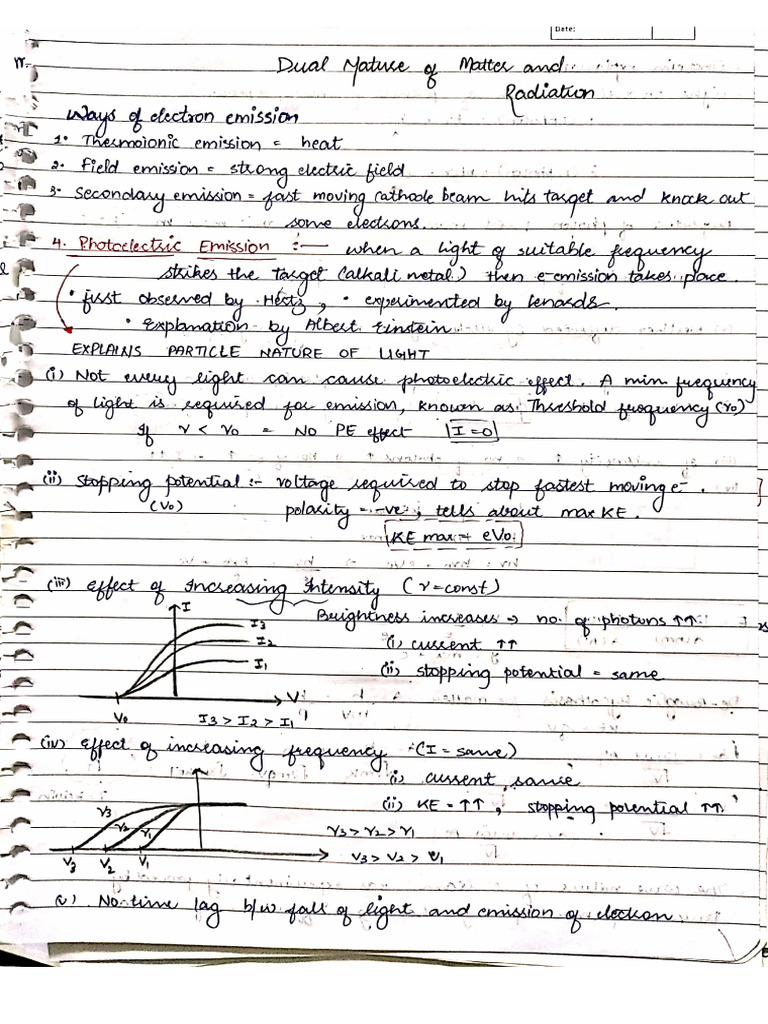 Date:
Dual Nature of Matter and
Radiation
Ways of electron emission
1. Thermoionic emission = heat
2. Field emission = strong electric field
3. Secondary emission = fast moving cathode beam hits target and knock out
some electrons.
4. Photoelectric Emission :— when a light of suitable frequency
strikes the target (alkali metal) then e- emission takes place.
• first observed by Hertz, • experimented by lenards.
• Explanation by Albert Einstein
EXPLAINS PARTICLE NATURE OF LIGHT
(i) Not every light can cause photoelectric effect. A min frequency
of light is required for emission, known as Threshold frequency (ν0)
If ν < ν0 = NO PE effect I = 0
(ii) Stopping potential :- voltage required to stop fastest moving e-.
(V0) polarity = -ve, tells about max KE.
KE max = eV0
(iii) effect of Increasing Intensity (ν = const)
I
I3
I2
I1
V
V0
I3 > I2 > I1
Brightness increases → no. of photons ↑↑
(i) current ↑↑
(ii) stopping potential = same
(iv) effect of increasing frequency (I = same)
(i) current same
(ii) KE = ↑↑, stopping potential ↑↑
ν3
ν2
ν1
V3 V2 V1
ν3 > ν2 > ν1
V3 > V2 > V1
v). No time lag b/w fall of light and emission of electron.